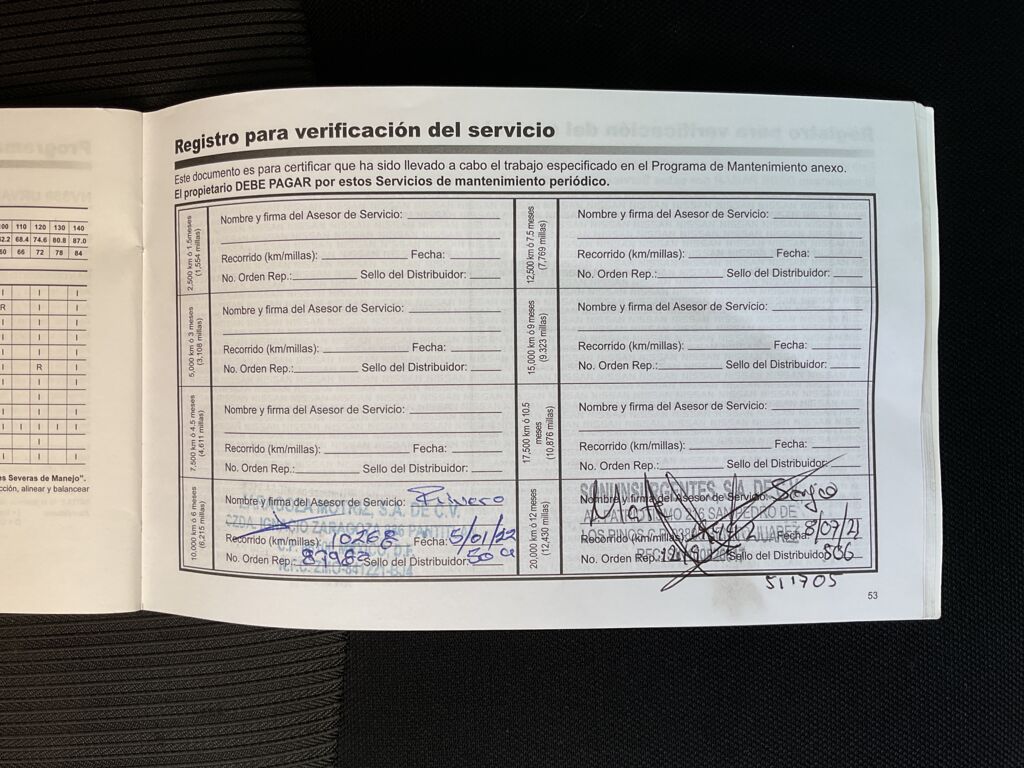 Registro para verificación del servicio
Este documento es para certificar que ha sido llevado a cabo el trabajo especificado en el Programa de Mantenimiento anexo.
El propietario DEBE PAGAR por estos Servicios de mantenimiento periódico.
2,500 km ó 1.5meses
(1,554 millas)
Nombre y firma del Asesor de Servicio:
Recorrido (km/millas): Fecha:
No. Orden Rep.: Sello del Distribuidor:
5,000 km ó 3 meses
(3,108 millas)
Nombre y firma del Asesor de Servicio:
Recorrido (km/millas): Fecha:
No. Orden Rep.: Sello del Distribuidor:
7,500 km ó 4.5 meses
(4,611 millas)
Nombre y firma del Asesor de Servicio:
Recorrido (km/millas): Fecha:
No. Orden Rep.: Sello del Distribuidor:
10,000 km ó 6 meses
(6,215 millas)
Nombre y firma del Asesor de Servicio:
ZARAGOZA MOTRIZ, S.A. DE C.V.
CZDA. IGNACIO ZARAGOZA
Recorrido (km/millas): 10268 Fecha: 5/01/22
No. Orden Rep.: 87983 Sello del Distribuidor:
12,500 km ó 7.5 meses
(7,769 millas)
Nombre y firma del Asesor de Servicio:
Recorrido (km/millas): Fecha:
No. Orden Rep.: Sello del Distribuidor:
15,000 km ó 9 meses
(9,323 millas)
Nombre y firma del Asesor de Servicio:
Recorrido (km/millas): Fecha:
No. Orden Rep.: Sello del Distribuidor:
17,500 km ó 10.5
meses
(10,876 millas)
Nombre y firma del Asesor de Servicio:
Recorrido (km/millas): Fecha:
No. Orden Rep.: Sello del Distribuidor:
20,000 km ó 12 meses
(12,430 millas)
S.A. DE
Nombre y firma del Asesor de Servicio:
SAN PEDRO DE
Recorrido (km/millas): Fecha: 8/07/21
No. Orden Rep.: Sello del Distribuidor: 506
511705
53
110 120 130 140
68.4 74.6 80.8 87.0
66 72 78 84
R
R
es Severas de Manejo".
cción, alinear y balancear